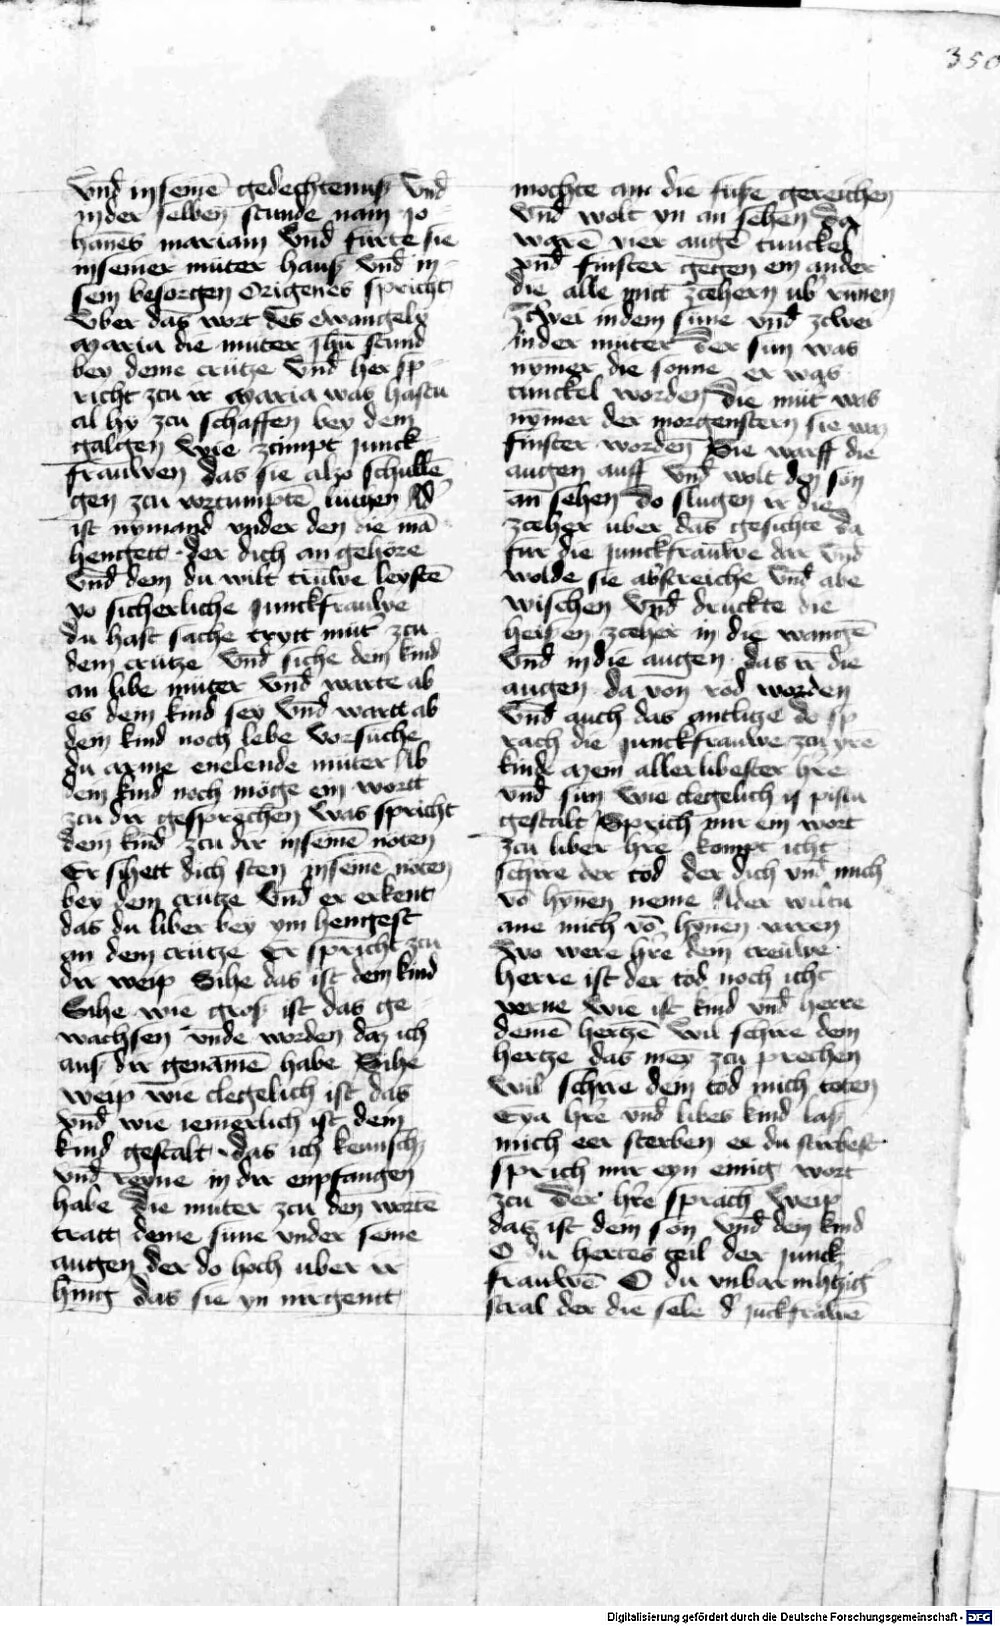 350
vnd in seinē gedechtenuß Vnd
in der selben stunde nam jo-
hañes mariam Vnd fürte sie
in seiner müter hauß Vnd in
sein besorgen Origenes spricht
Vber das wort des ewangely
Maria die muter jhū stund
bey deme crütze Vnd her sp-
richt zcu ir Maria was hastu
al hy zcu schaffen bey dem
galgen Wie zcimpt junck-
frauwen das sie also schullē
gen zcu
ist nymand vnder den die mā
hengett der dich an gehöre
Vnd dem du wilt trüwe leystē
yo sicherliche junckfrauwe
du hast sache trytt müt' zcu
dem crütze Vnd siche dem kind
an libe müter Vnd warte ab
es dem kind sey Vnd wartt ab
dem kind noch lebe Vorsüche
du arme enelende müter Ab
dem kind noch möge ein wortt
zcu dir gesprechen Was spricht
dein kind zcu dir in seinē nöten
Er sihett dich sten in seinē nöten
bey dem crütze Vnd er erkent
das du liber bey ym hengest
an dem crütze Er spricht zcu
dir weip Sihe das ist dem kind
Sihe wie gros ist das ge-
wachsen vnde worden daz ich
auß dir genāmē habe Sihe
weip wie clegelich ist das
vnd wie iemerlich ist dem
kind gestalt das ich keusch
vnd reyne in dir enpfangen
habe Die muter zcu den wortē
tratt deme sune vnder seine
augen der do hoch uber ir
hing das sie yn nirgentt
mochte an die füße gereichen
Vnd wolt yn an sehen Da
warē vier augē tunckel
vnd finster gegen ein ander
die alle mitt zcehern ub' runen
Zcwer in dem sune vnd zcwei
in der müter Der sun was
nymer die sonne er was
tunckel worden Die mut' was
nymer der morgenstern sie was
finster worden Sie warff die
augen auff Vnd wolt den son
an sehen Do slugen ir die
zceher uber das gesichte Da
fur die junckfrauwe dar Vnd
wolde sie abstreiche Vnd abe
wischen Vnd druckte die
heissen zceher in die wangē
Vnd in die augen das ir die
augen da von rod worden
Vnd auch das antlitze do sp
rach die junckfrauwe zcu yre
kinde Mein allerlibester h're
vnd sun wie clegelich is pistu
gestalt Sprich mir ein wort
zcu liber h're kompt icht
schire der tod der dich vnd mich
vō hynen neme Ader wiltu
ane mich vō hynen
Wo were h're dein treuwe
herre ist der tod noch icht
verne Wie ist kind vnd herre
deinē hertzē Wil schire dem
hertze das mey zcu prechen
Wil schire dem tod mich toten
Eya h're vnd libes kind laß
mich eer sterben er du stirbest
sprich mir eyn einig wort
zcu Der h're sprach Weip
daz ist dein son Vnd dem kind
O du hertes teil der junck
frauwē O du vnbarmhtzig'
stral der die sele d' juckfrawē
Digitalisierung gefördert durch die Deutsche Forschungsgemeinschaft - DFG